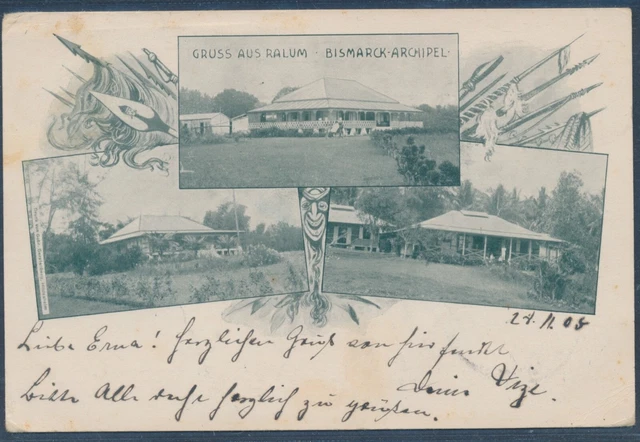 GRUSS AUS RALUM · BISMARCK-ARCHIPEL·
24.11.05
Liebe Erna! Herzlichen Gruß von hier sendet
Deine
Bitte Alle recht herzlich zu grüßen.